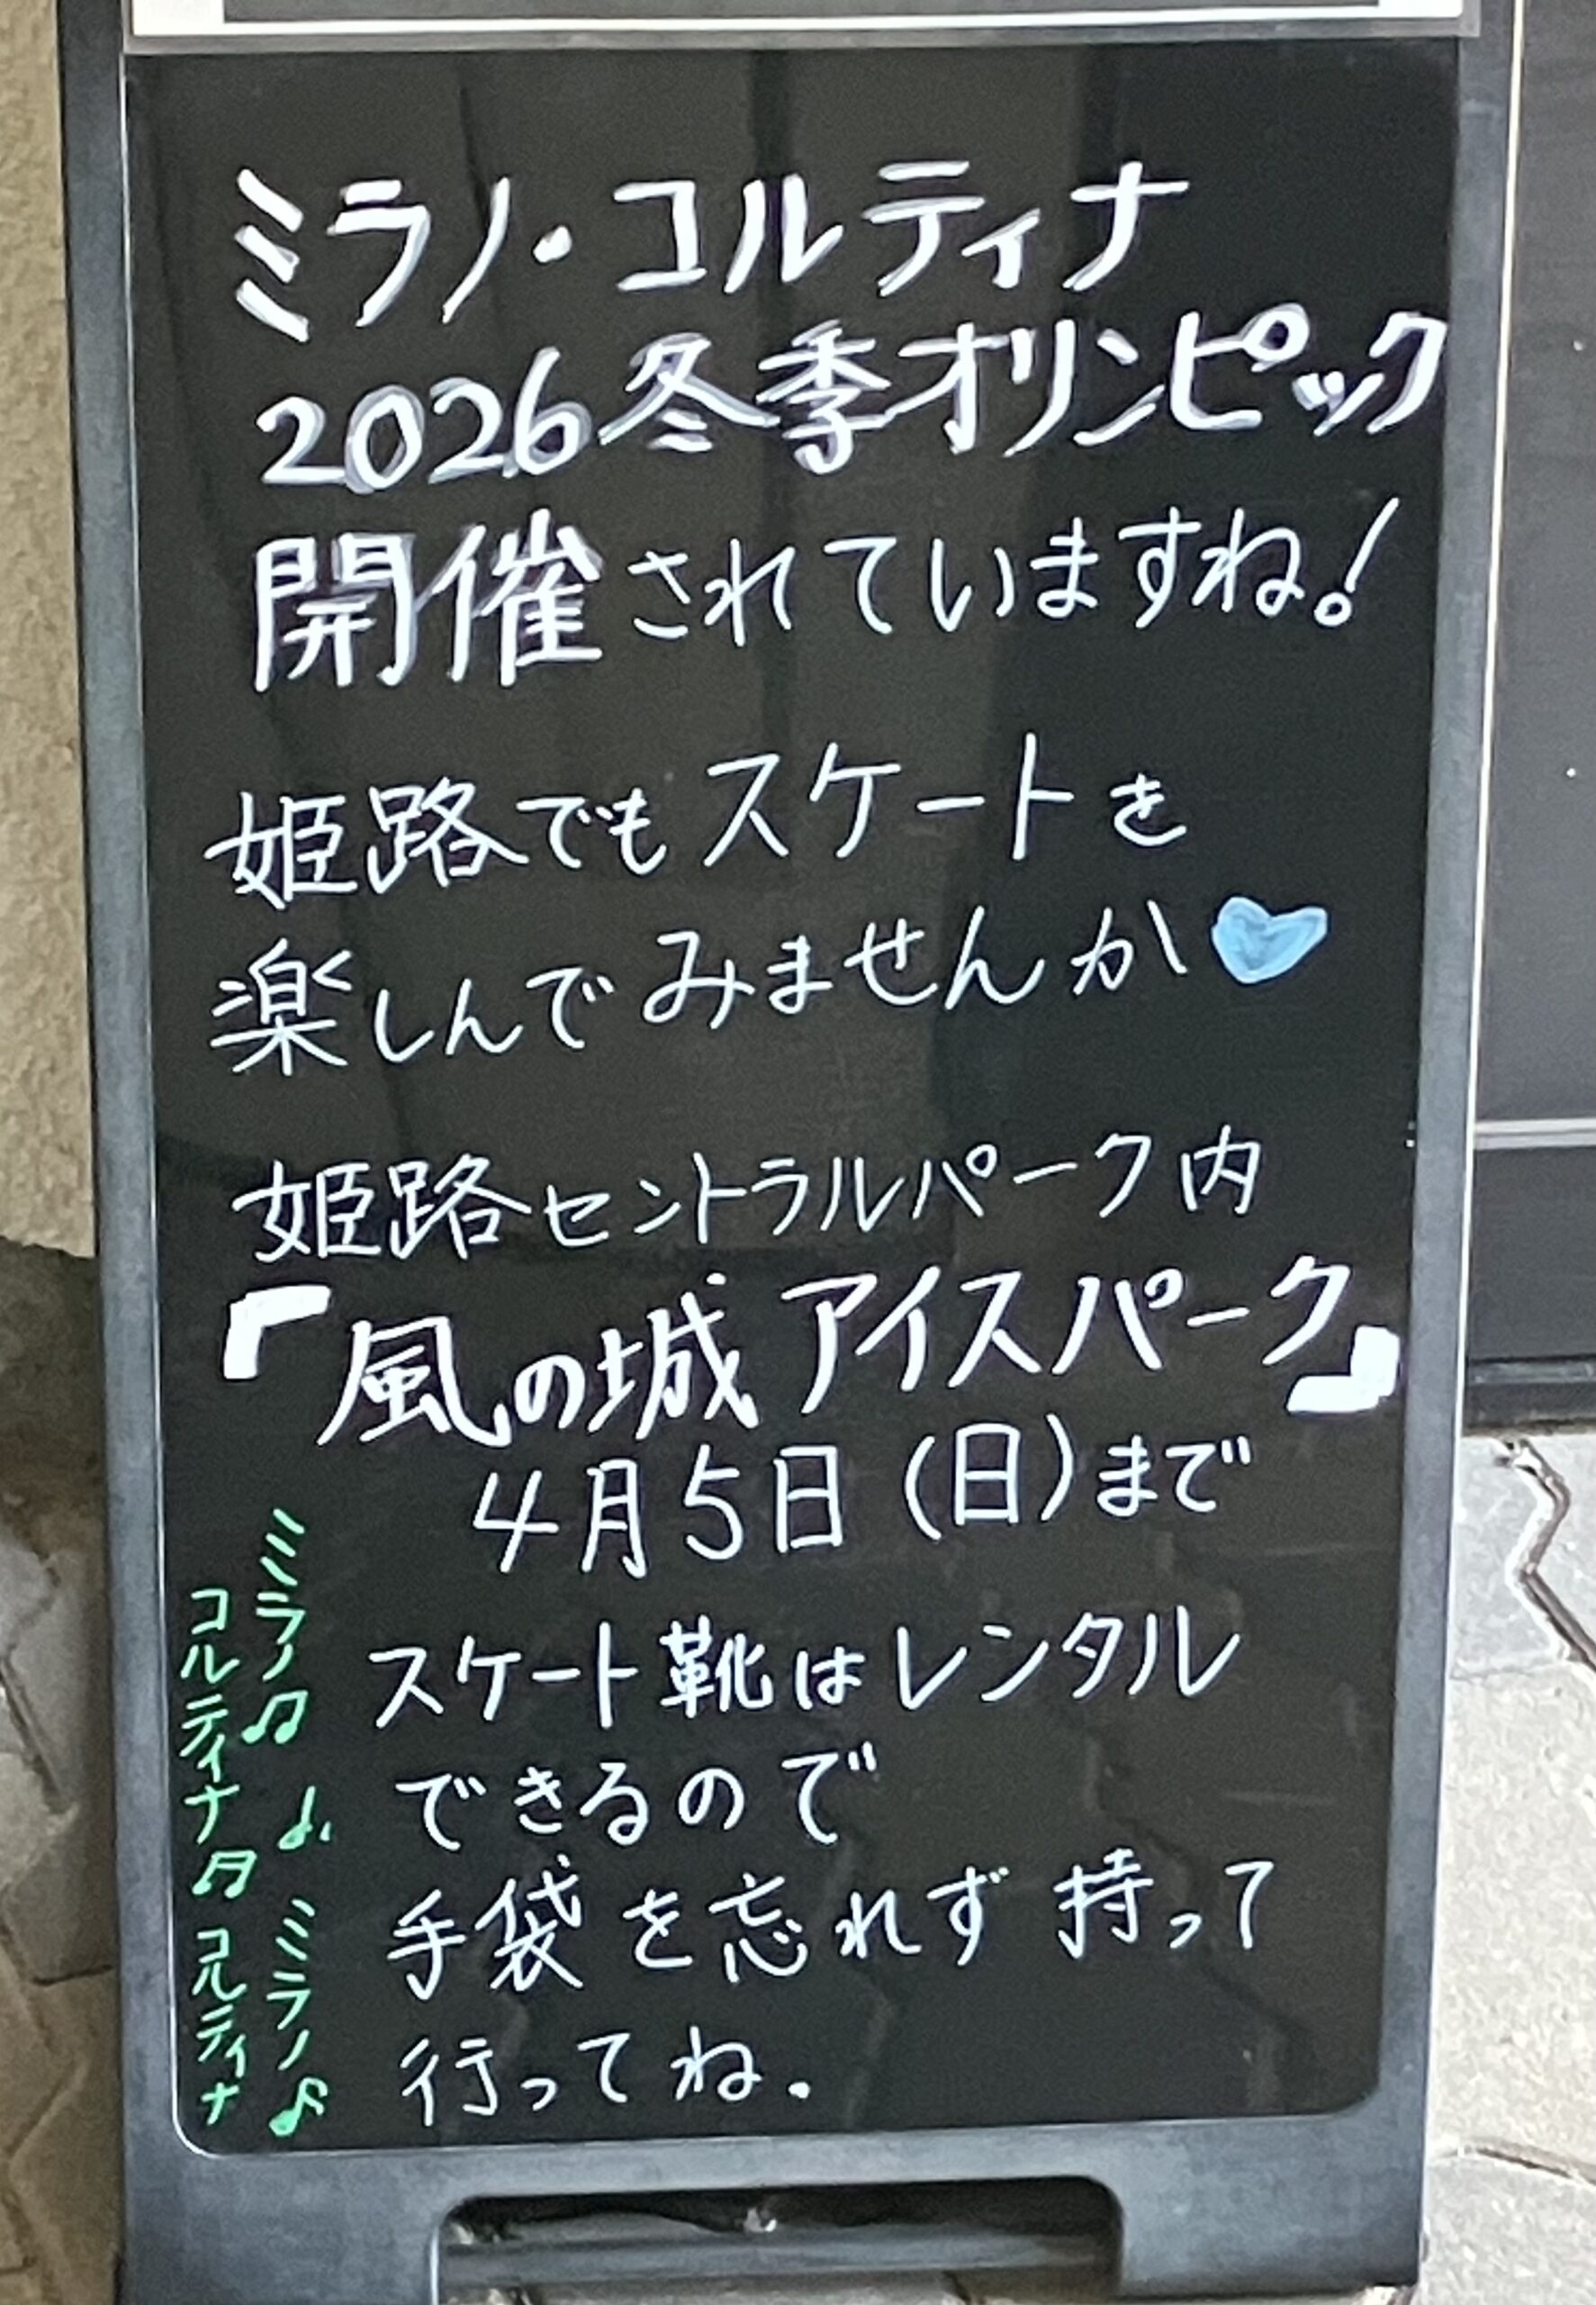 ミラノ・コルティナ
2026冬季オリンピック
開催されていますね!
姫路でもスケートを
楽しんでみませんか
姫路セントラルパーク内
『風の城 アイスパーク』
4月5日(日)まで
スケート靴はレンタル
できるので
手袋を忘れず持って
行ってね.
ミラノ♫ ♩. ミラノ♪
コルティナ♫ コルティナ